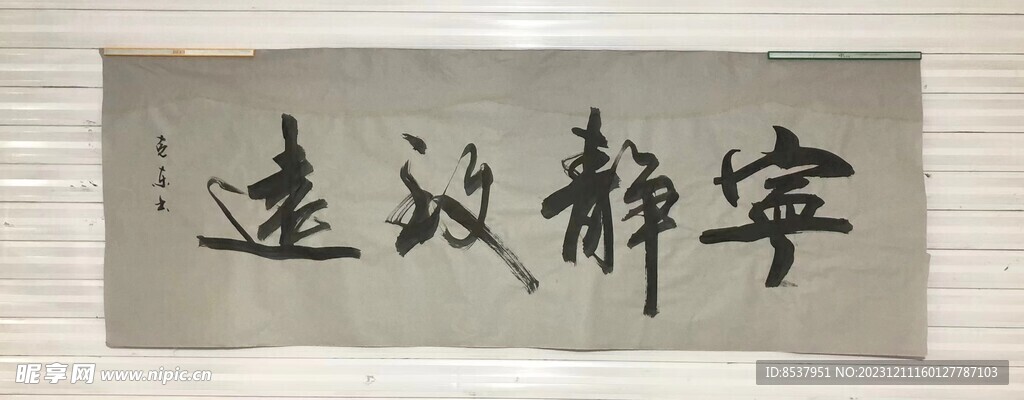 寧靜致遠
克东书
昵享网 www.nipic.cn
ID:8537951 NO:20231211160127787103